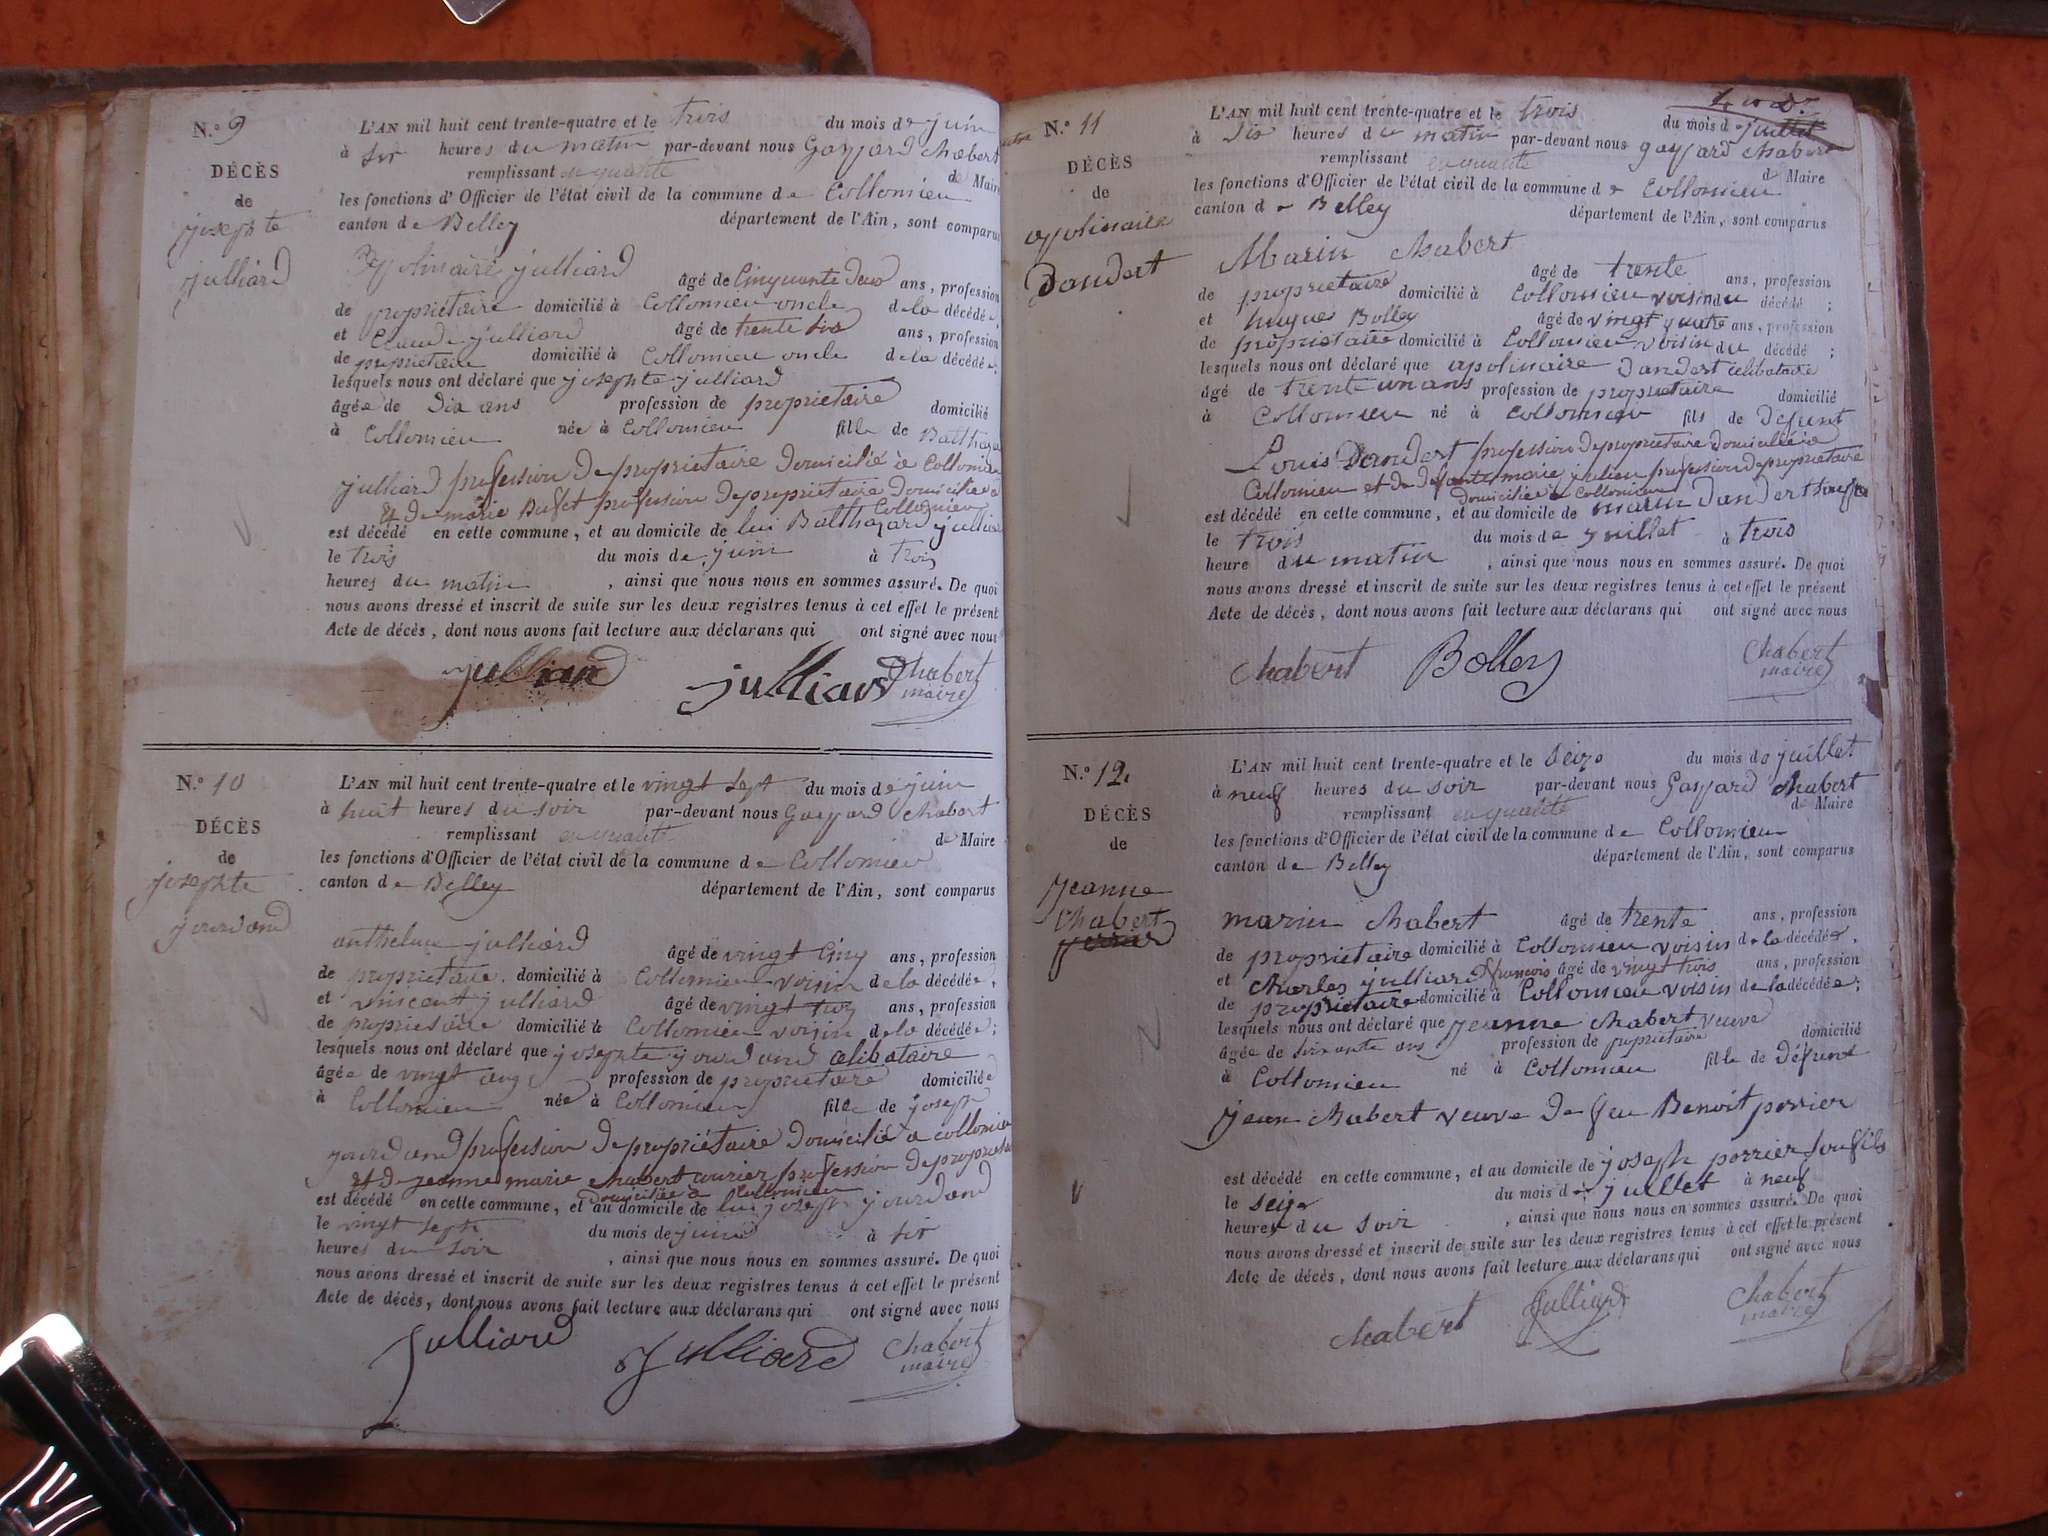 N.o 9
DÉCÈS
de
josephte
julliard
L'AN mil huit cent trente-quatre et le trois du mois de juin
à six heures du matin par-devant nous Gaspard Chabert
remplissant en qualité de Maire
les fonctions d'Officier de l'état civil de la commune de Collomieu
canton de Belley département de l'Ain, sont comparus
Apolinaire julliard âgé de Cinquante deux ans, profession
de propriétaire domicilié à Collomieu oncle de la décédée,
et Claude julliard âgé de trente six ans, profession
de propriétaire domicilié à Collomieu oncle de la décédée;
lesquels nous ont déclaré que josephte julliard
âgée de dix ans profession de propriétaire domicilié
à Collomieu née à Collomieu fille de Balthazar
julliard profession de propriétaire domicilié à Collomieu
et de marie Buffet profession de propriétaire domiciliée à
Collomieu
est décédé en cette commune, et au domicile de lui Balthazard julliard
le trois du mois de juin à trois
heures du matin, ainsi que nous nous en sommes assuré. De quoi
nous avons dressé et inscrit de suite sur les deux registres tenus à cet effet le présent
Acte de décès, dont nous avons fait lecture aux déclarans qui ont signé avec nous
julliard julliard Chabert
maire
N.o 10
DÉCÈS
de
josephte
jourdand
L'AN mil huit cent trente-quatre et le vingt sept du mois de juin
à huit heures du soir par-devant nous Gaspard Chabert
remplissant en qualité de Maire
les fonctions d'Officier de l'état civil de la commune de Collomieu
canton de Belley département de l'Ain, sont comparus
anthelme julliard âgé de vingt Cinq ans, profession
de propriétaire domicilié à Collomieu voisin de la décédée,
et vincent julliard âgé de vingt trois ans, profession
de propriétaire domicilié à Collomieu voisin de la décédée;
lesquels nous ont déclaré que josephte jourdand célibataire
âgée de vingt ans profession de propriétaire domiciliée
à Collomieu née à Collomieu fille de joseph
jourdand profession de propriétaire domicilié à collomieu
et de jeanne marie chabert profession de propriétaire
domiciliée à Collomieu
est décédé en cette commune, et au domicile de lui joseph jourdand
le vingt septe du mois de juin à six
heures du soir, ainsi que nous nous en sommes assuré. De quoi
nous avons dressé et inscrit de suite sur les deux registres tenus à cet effet le présent
Acte de décès, dont nous avons fait lecture aux déclarans qui ont signé avec nous
Julliard Julliard Chabert
maire
N.o 11
DÉCÈS
de
apolinaire
Dandert
L'AN mil huit cent trente-quatre et le trois du mois de juillet
à six heures du matin par-devant nous gaspard Chabert
remplissant en qualité de Maire
les fonctions d'Officier de l'état civil de la commune de Collomieu
canton de Belley département de l'Ain, sont comparus
Marin Chabert âgé de trente ans, profession
de propriétaire domicilié à Collomieu voisin du décédé;
et hugues Bolley âgé de vingt quatre ans, profession
de propriétaire domicilié à Collomieu voisin du décédé;
lesquels nous ont déclaré que apolinaire Dandert célibataire
âgé de trente un ans profession de propriétaire domicilié
à Collomieu né à Collomieu fils de Defunt
Louis Dandert profession de propriétaire domicilié à
Collomieu et de defunte marie julien profession de propriétaire
domiciliée à Collomieu
est décédé en cette commune, et au domicile de marin Dandert
le trois du mois de juillet à trois
heure du matin, ainsi que nous nous en sommes assuré. De quoi
nous avons dressé et inscrit de suite sur les deux registres tenus à cet effet le présent
Acte de décès, dont nous avons fait lecture aux déclarans qui ont signé avec nous
Chabert Bolley Chabert
maire
N.o 12.
DÉCÈS
de
Jeanne
Chabert
L'AN mil huit cent trente-quatre et le seize du mois de juillet
à neuf heures du soir par-devant nous Gaspard Chabert
remplissant en qualité de Maire
les fonctions d'Officier de l'état civil de la commune de Collomieu
canton de Belley département de l'Ain, sont comparus
marin Chabert âgé de trente ans, profession
de propriétaire domicilié à Collomieu voisin de la décédée,
et Charles julliard françois âgé de vingt trois ans, profession
de propriétaire domicilié à Collomieu voisin de la décédée;
lesquels nous ont déclaré que jeanne Chabert veuve
âgée de soixante ans profession de propriétaire domicilié
à Collomieu né à Collomieu fille de défunt
jean Chabert veuve de feu Benoit perrier
est décédé en cette commune, et au domicile de joseph perrier son fils
le seize du mois de juillet à neuf
heures du soir, ainsi que nous nous en sommes assuré. De quoi
nous avons dressé et inscrit de suite sur les deux registres tenus à cet effet le présent
Acte de décès, dont nous avons fait lecture aux déclarans qui ont signé avec nous
Chabert Julliard Chabert
maire